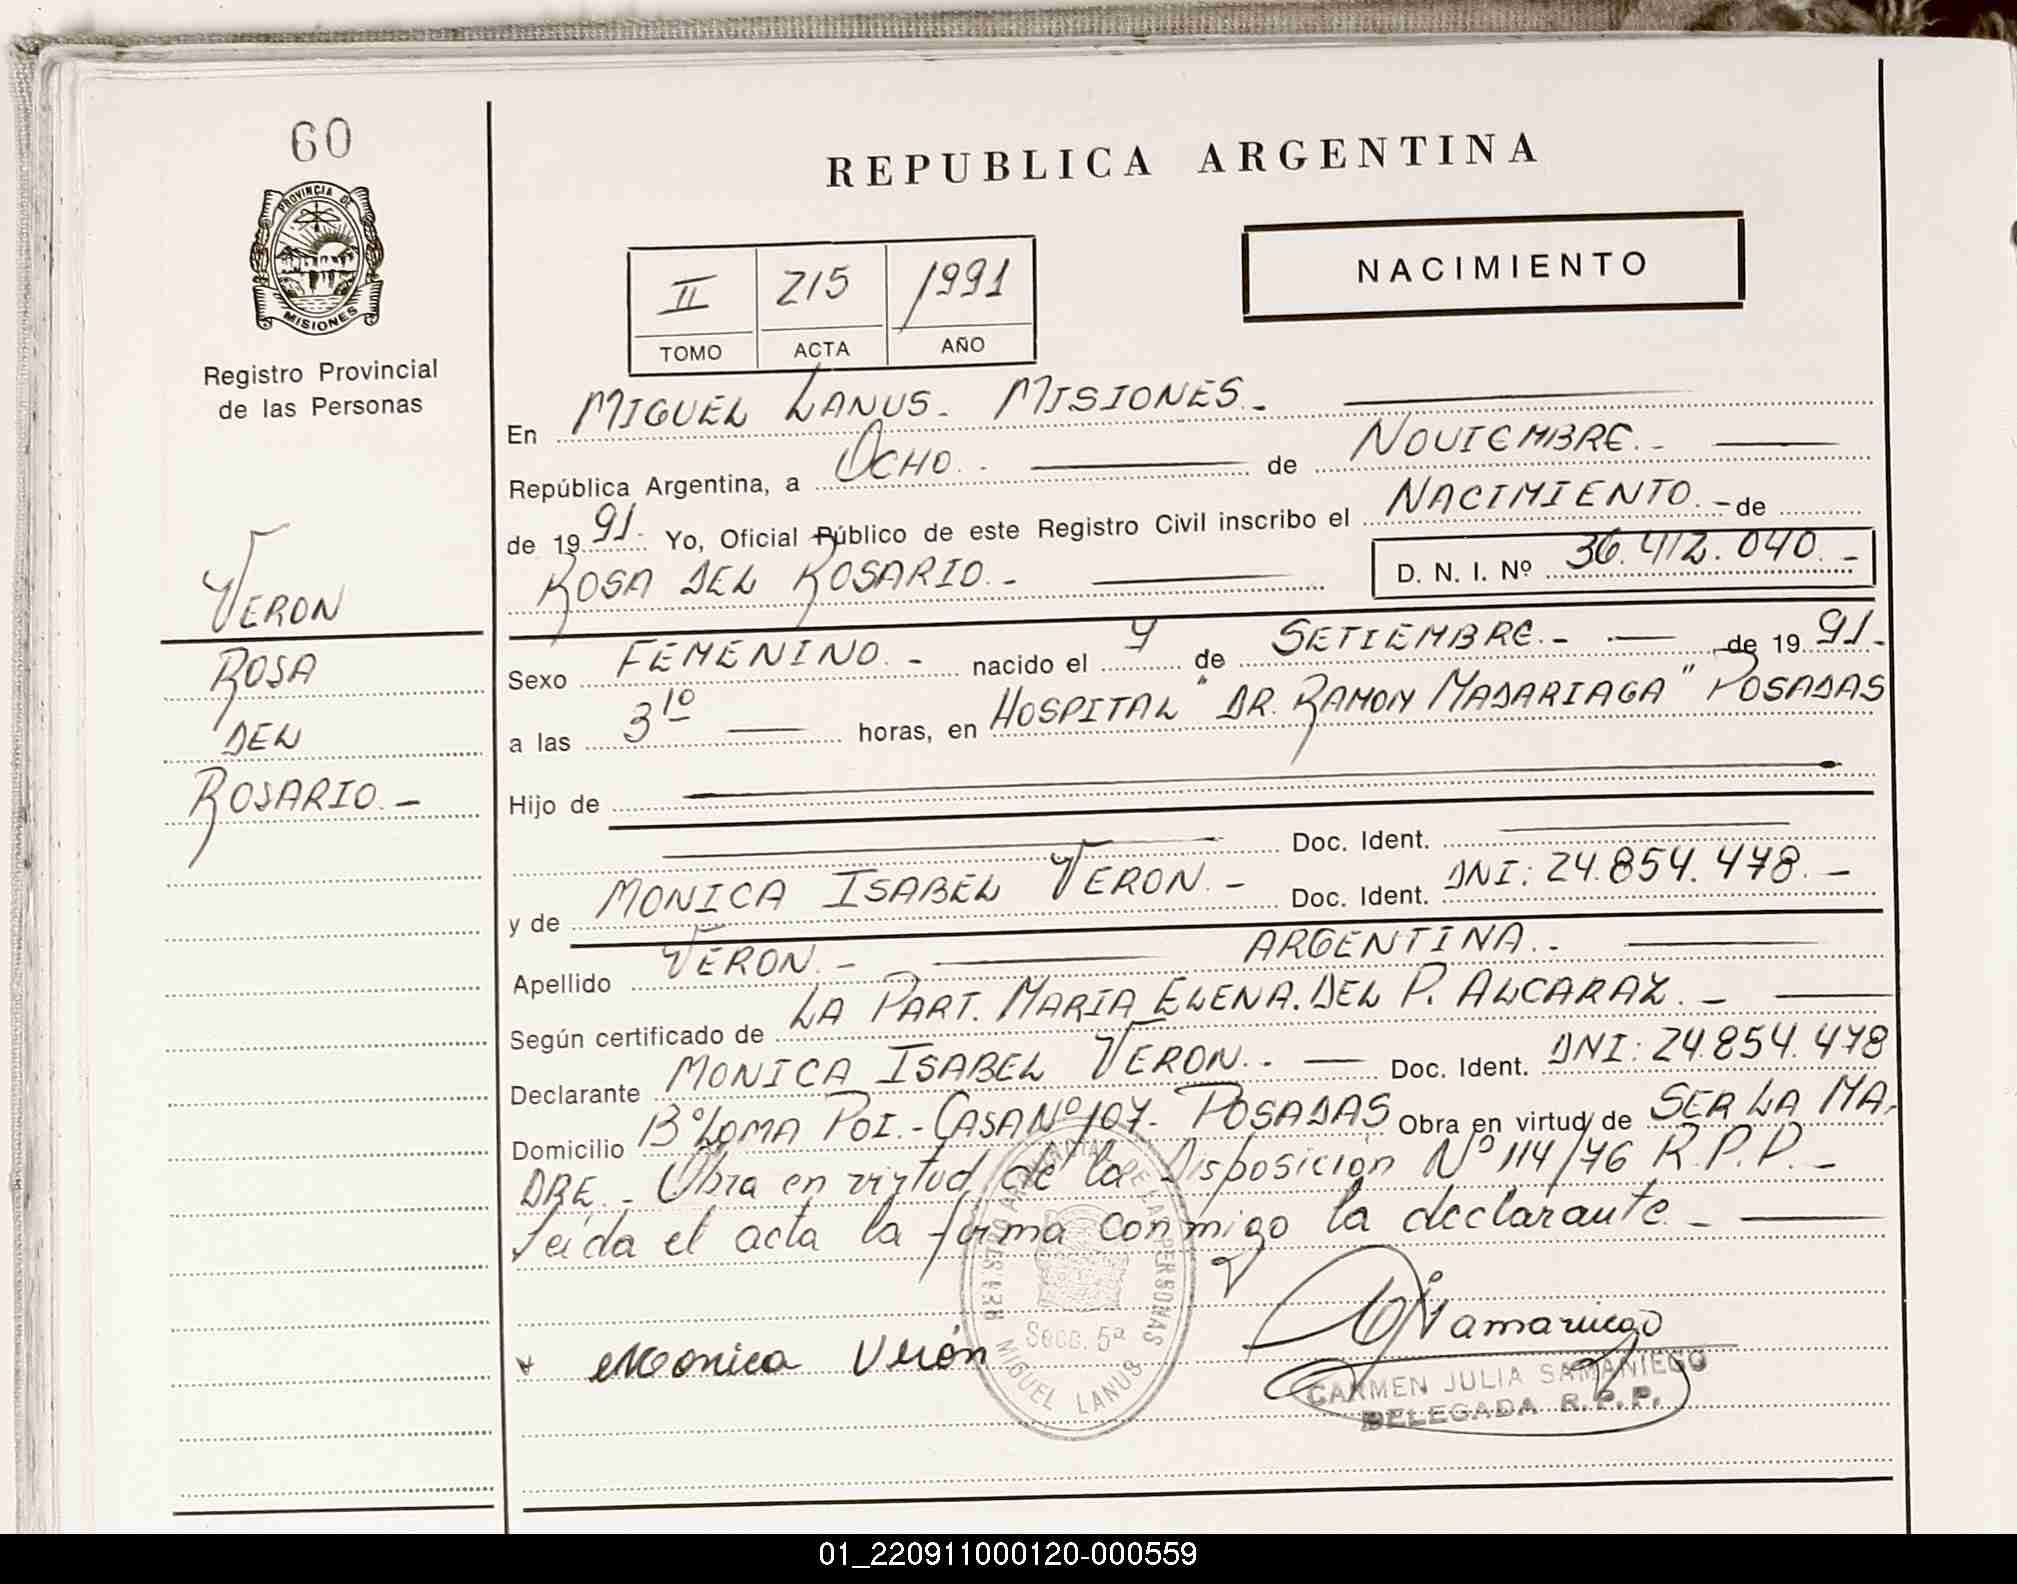 60
PROVINCIA DE
MISIONES
Registro Provincial
de las Personas
VERON
ROSA
DEL
ROSARIO.-
REPUBLICA ARGENTINA
II 215 1991
TOMO ACTA AÑO
NACIMIENTO
En MIGUEL LANUS. MISIONES.-
República Argentina, a OCHO.- de NOVIEMBRE.-
de 1991.- Yo, Oficial Público de este Registro Civil inscribo el NACIMIENTO.- de
ROSA DEL ROSARIO.- D. N. I. Nº 36.412.040.-
Sexo FEMENINO.- nacido el 4 de SETIEMBRE.- de 1991.-
a las 3 10 horas, en HOSPITAL "DR. RAMON MADARIAGA" POSADAS
Hijo de
Doc. Ident.
y de MONICA ISABEL VERON.- Doc. Ident. DNI: 24.854.478.-
Apellido VERON.- ARGENTINA.-
Según certificado de LA PART. MARIA ELENA. DEL P. ALCARAZ.-
Declarante MONICA ISABEL VERON.- Doc. Ident. DNI: 24.854.478
Domicilio Bº LOMA POI.- CASA Nº 107- POSADAS Obra en virtud de SER LA MA-
DRE.- Obra en virtud de la Disposición Nº 114/76 R.P.P.-
Leída el acta la firma conmigo la declarante.-
Monica Verón
REGISTRO DE LAS PERSONAS
Secc. 5ª
MIGUEL LANUS
Samaniego
CARMEN JULIA SAMANIEGO
DELEGADA R.P.P.
01_220911000120-000559